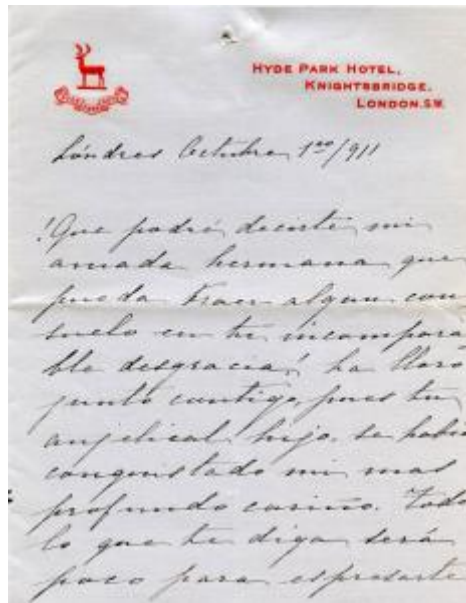 HYDE PARK HOTEL,
KNIGHTSBRIDGE,
LONDON. S.W.
Lóndres Octubre 1ro/911
!Que podré decirte mi
amada hermana que
pueda traer algun con
suelo en tu incompara
ble desgracia! ha lloro
junto contigo, pues tu
anjelical hijo, se habia
conquistado mi mas
profundo cariño. Todo
lo que te diga será
poco para espresarte